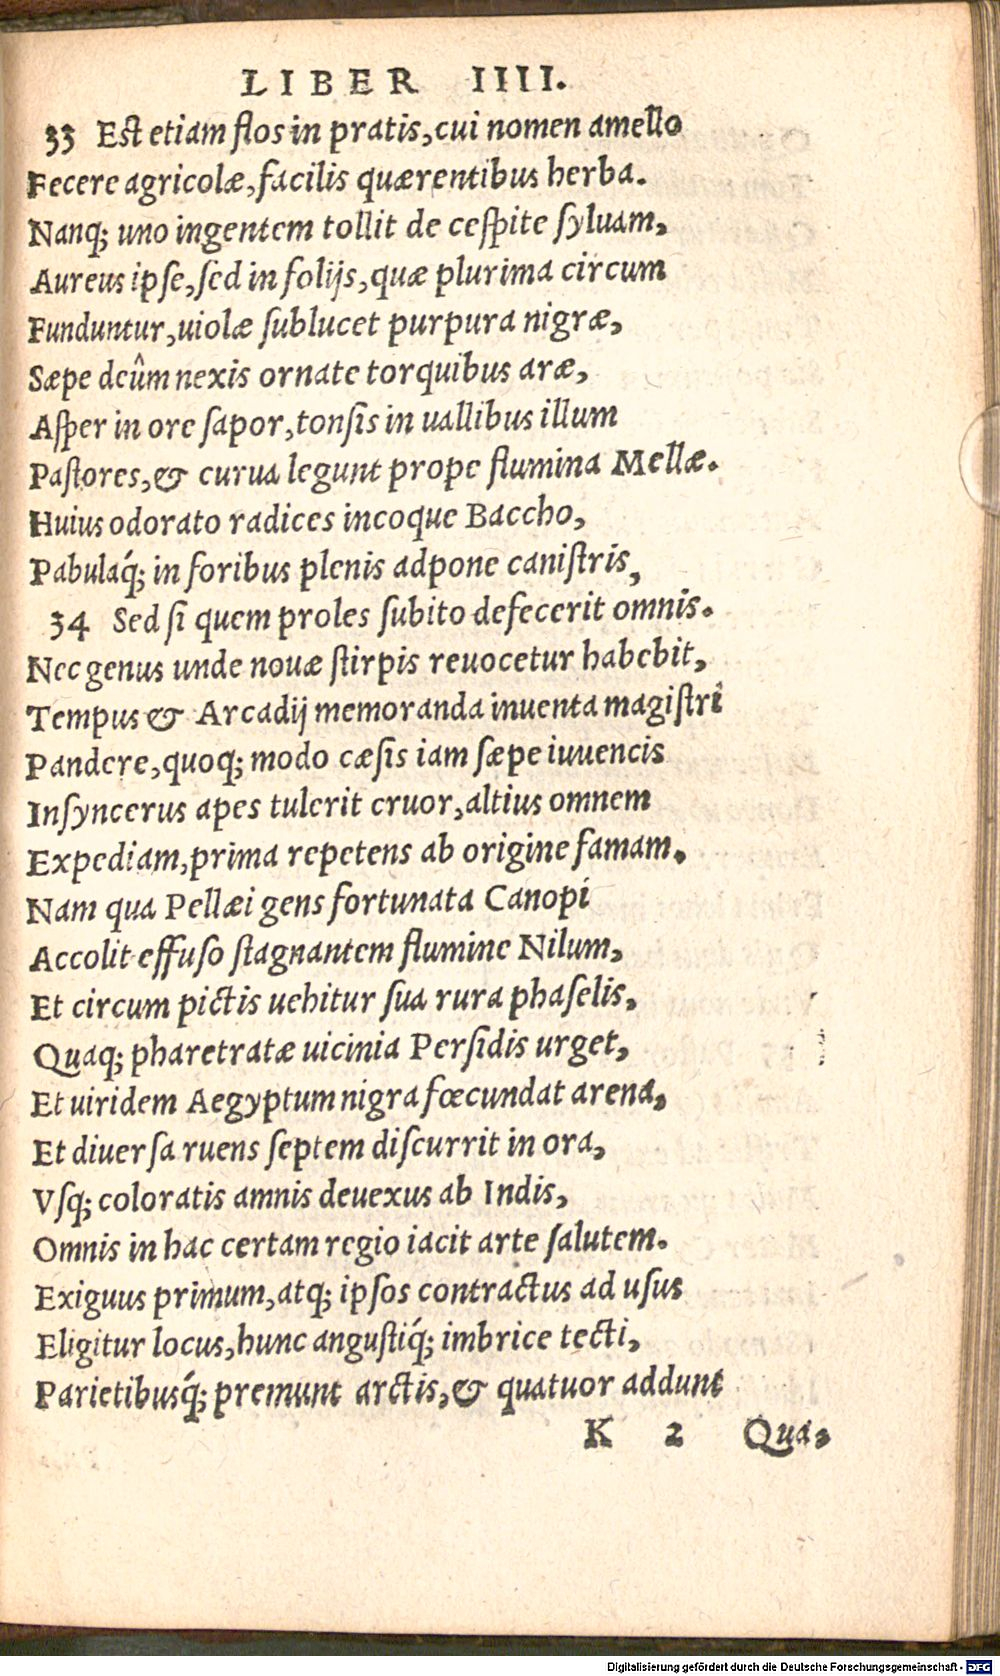 LIBER IIII.
33 Est etiam flos in pratis, cui nomen amello
Fecere agricolæ, facilis quærentibus herba.
Nanq; uno ingentem tollit de cespite syluam,
Aureus ipse, sed in folijs, quæ plurima circum
Funduntur, uiolæ sublucet purpura nigræ,
Sæpe deûm nexis ornatę torquibus aræ,
Asper in ore sapor, tonsis in uallibus illum
Pastores, & curua legunt prope flumina Mellæ.
Huius odorato radices incoque Baccho,
Pabulaq́; in foribus plenis adpone canistris,
34 Sed si quem proles subito defecerit omnis.
Nec genus unde nouæ stirpis reuocetur habebit,
Tempus & Arcadij memoranda inuenta magistri
Pandere, quoq; modo cæsis iam sæpe iuuencis
Insyncerus apes tulerit cruor, altius omnem
Expediam, prima repetens ab origine famam.
Nam qua Pellæi gens fortunata Canopi
Accolit effuso stagnantem flumine Nilum,
Et circum pictis uehitur sua rura phaselis,
Quaq; pharetratæ uicinia Persidis urget,
Et uiridem Aegyptum nigra fœcundat arena,
Et diuersa ruens septem discurrit in ora,
Vsq; coloratis amnis deuexus ab Indis,
Omnis in hac certam regio iacit arte salutem.
Exiguus primum, atq; ipsos contractus ad usus
Eligitur locus, hunc angustiq́; imbrice tecti,
Parietibusq́; premunt arctis, & quatuor addunt
K 2 Qua,
Digitalisierung gefördert durch die Deutsche Forschungsgemeinschaft - DFG